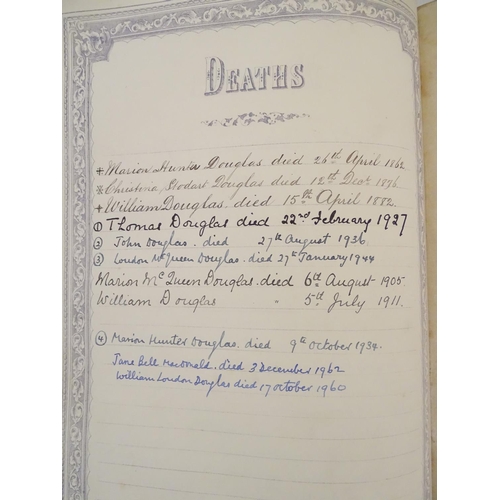 DEATHS
+ Marion Hunter Douglas. died 26th April 1862.
* Christina Godart Douglas. died 12th Decr. 1876.
+ William Douglas. died 15th April 1882.
① Thomas Douglas died 22nd February 1927
② John Douglas. died 27th August 1936.
③ Loudon McQueen Douglas. died 27th January 1944
Marion McQueen Douglas. died 6th August 1905
William Douglas " 5th July 1911.
④ Marion Hunter Douglas. died 9th October 1934.
Jane Bell Macdonald. died 3 December 1962
William Loudon Douglas died 17 October 1960